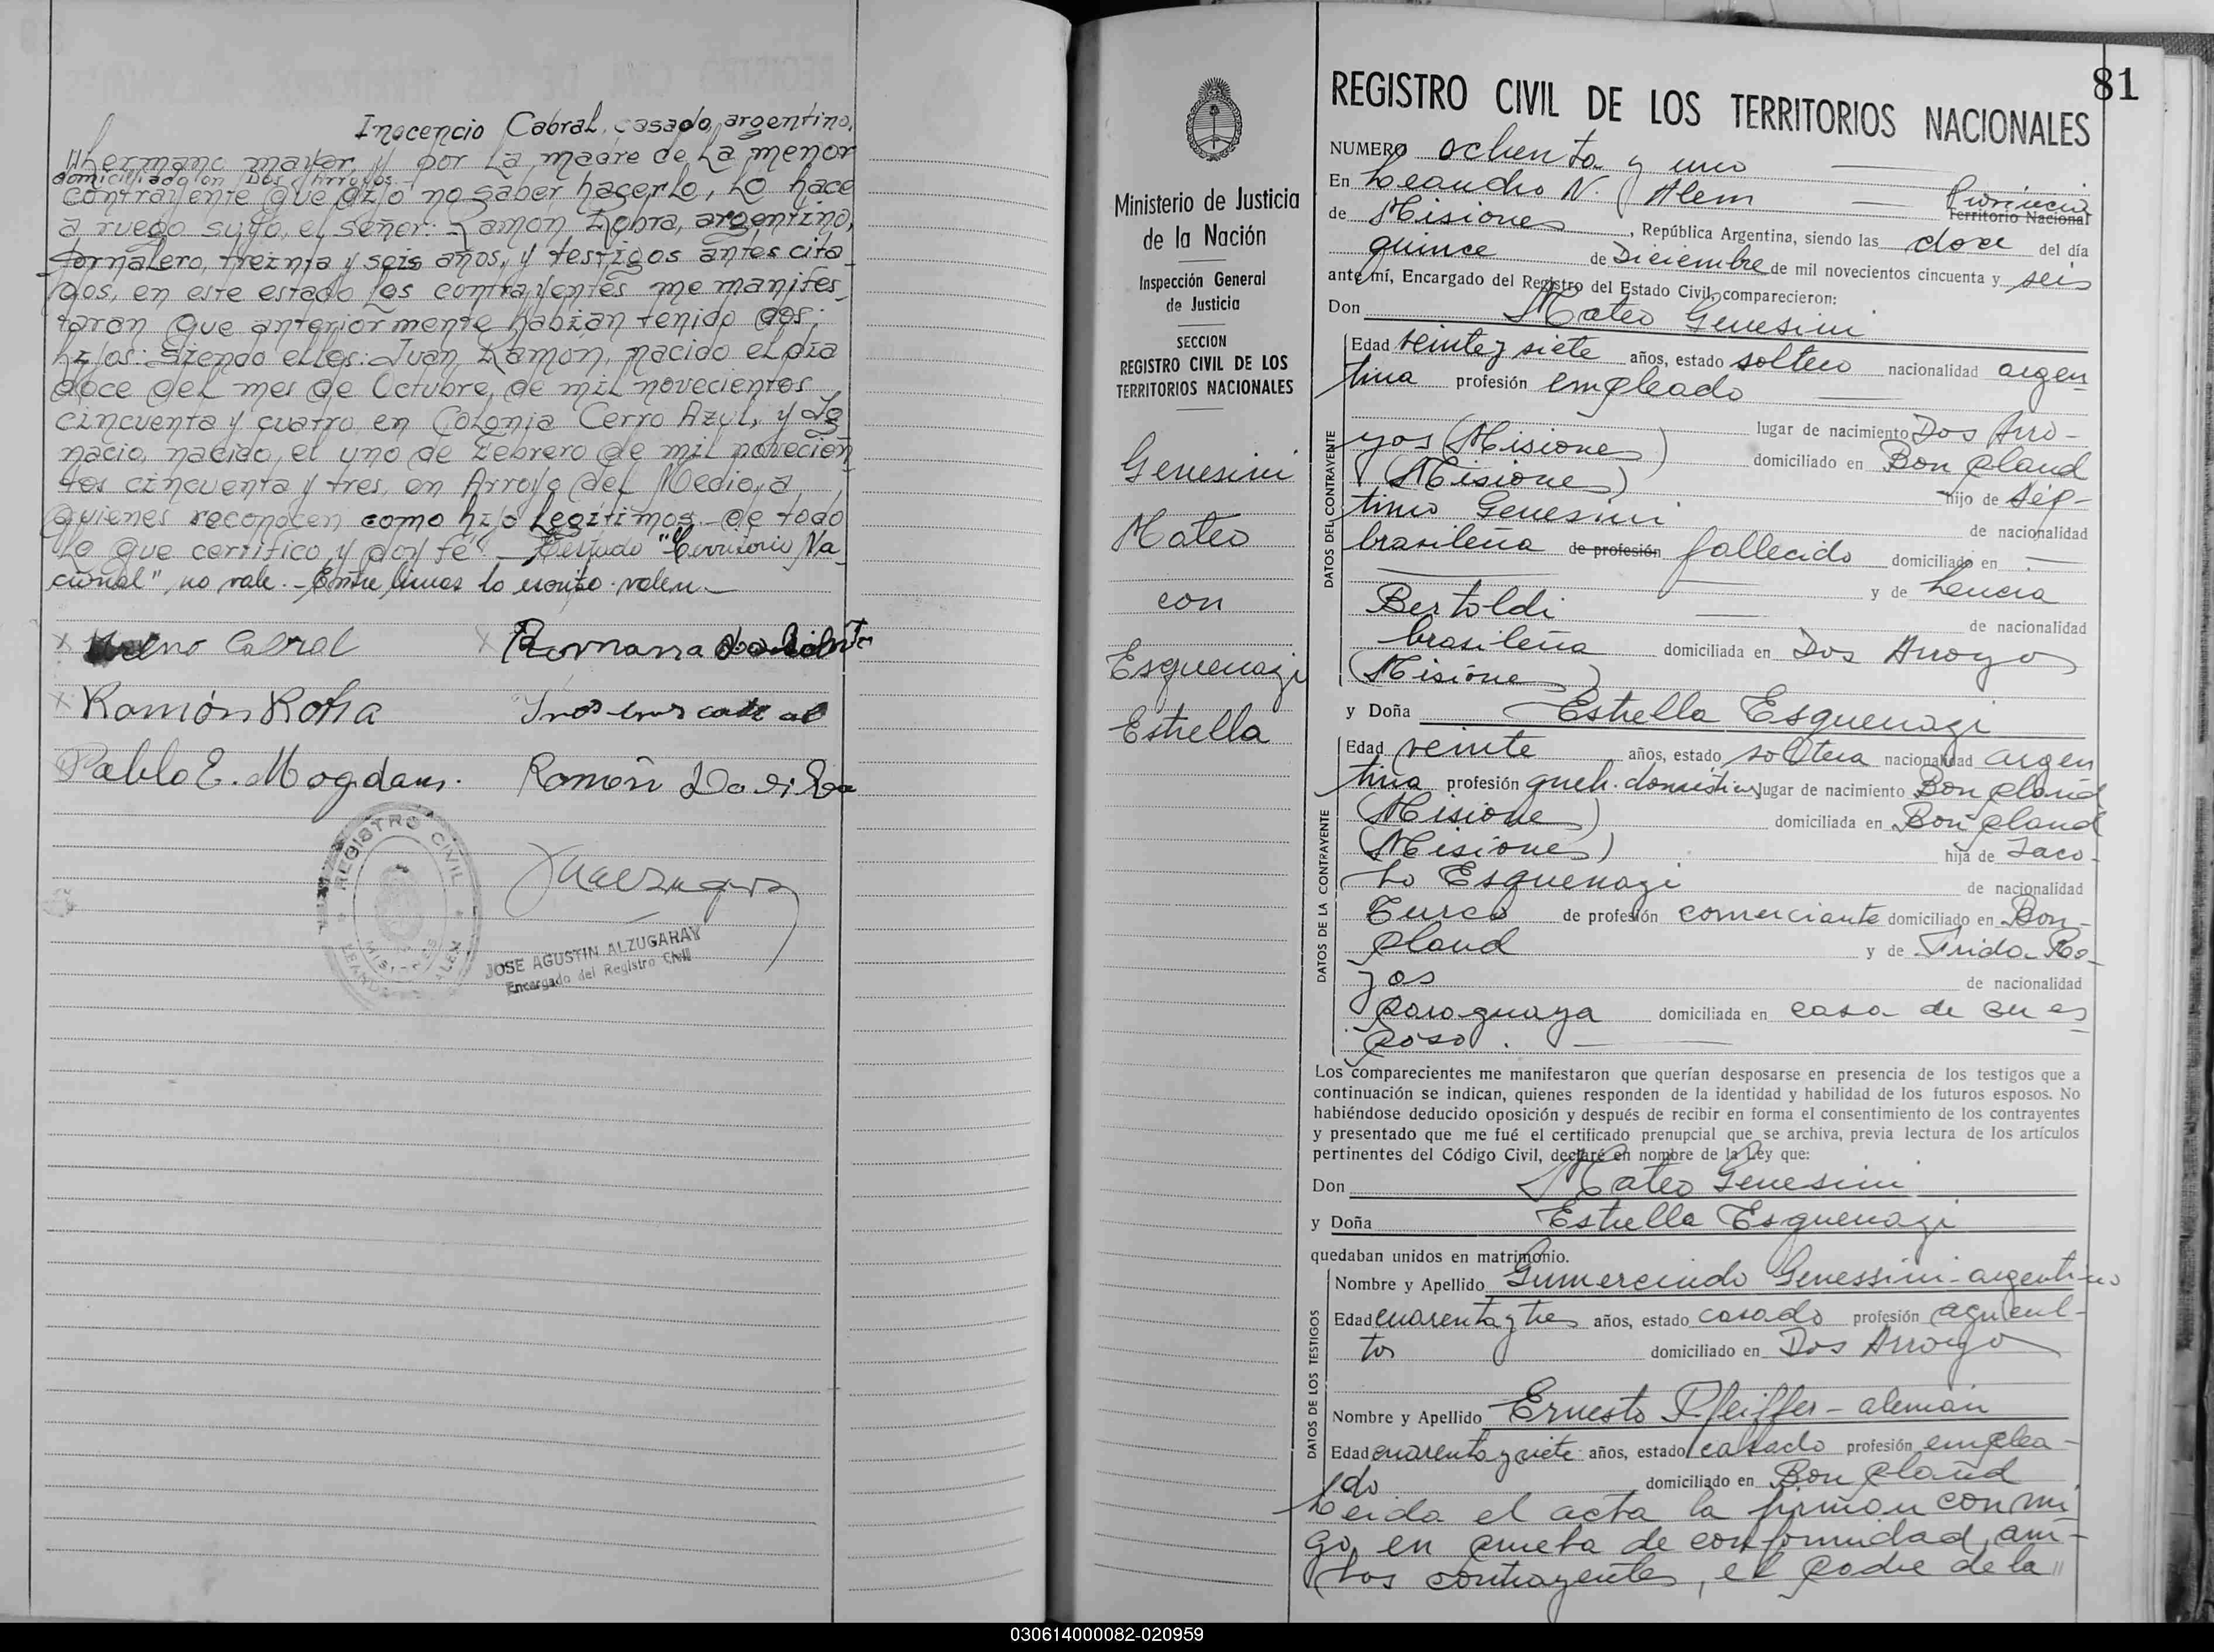 Inocencio Cabral, casado, argentino,
hermano mayor y por la madre de la menor
domiciliado en Dos Arroyos
contrayente que dijo no saber hacerlo, lo hace
a ruego suyo, el señor: Ramon Robra, argentino,
jornalero, treinta y seis años, y testigos antes cita
dos, en este estado los contrayentes me manifes
taron que anteriormente habian tenido dos
hijos: siendo ellos: Juan Ramón, nacido el día
doce del mes de Octubre, de mil novecientos
cincuenta y cuatro en Colonia Cerro Azul, y Ig
nacio, nacido, el uno de Febrero de mil novecien
tos cincuenta y tres, en Arroyo del Medio, a
quienes reconocen como hijo legítimos- de todo
lo que certifico y doy fe". Testado "Territorio Na
cional", no vale.- Entre lineas lo escrito- valen-
Cabral Romana
Ramón
Pablo E. Mogdans. Ramón Da Silva
REGISTRO CIVIL
MISIONES
LEANDRO N. ALEM
JOSE AGUSTIN ALZUGARAY
Encargado del Registro Civil
81
Ministerio de Justicia
de la Nación
Inspección General
de Justicia
SECCION
REGISTRO CIVIL DE LOS
TERRITORIOS NACIONALES
Genesini
Mateo
con
Esquenazi
Estrella
REGISTRO CIVIL DE LOS TERRITORIOS NACIONALES
NUMERO ochenta y uno
En Leandro N. Alem Provincia
Territorio Nacional
de Misiones, República Argentina, siendo las doce del día
quince de Diciembre de mil novecientos cincuenta y seis
ante mí, Encargado del Registro del Estado Civil, comparecieron:
Don Mateo Genesini
DATOS DEL CONTRAYENTE
Edad veinte y siete años, estado soltero nacionalidad argen
tina profesión empleado
lugar de nacimiento Dos Arro-
yos (Misiones) domiciliado en Bonpland
(Misiones) hijo de Sép-
timo Genesini de nacionalidad
brasileña de profesión fallecido domiciliado en —
y de Lencia
Bertoldi de nacionalidad
brasileña domiciliada en Dos Arroyos
(Misiones)
y Doña Estrella Esquenazi
DATOS DE LA CONTRAYENTE
Edad veinte años, estado soltera nacionalidad argen
tina profesión queh. domésticos lugar de nacimiento Bonpland
(Misiones) domiciliada en Bonpland
(Misiones) hija de Jaco-
bo Esquenazi de nacionalidad
Turco de profesión comerciante domiciliado en Bon-
pland y de Frida Ro-
jas de nacionalidad
paraguaya domiciliada en casa de su es
poso.
Los comparecientes me manifestaron que querían desposarse en presencia de los testigos que a
continuación se indican, quienes responden de la identidad y habilidad de los futuros esposos. No
habiéndose deducido oposición y después de recibir en forma el consentimiento de los contrayentes
y presentado que me fué el certificado prenupcial que se archiva, previa lectura de los artículos
pertinentes del Código Civil, declaré en nombre de la Ley que:
Don Mateo Genesini
y Doña Estrella Esquenazi
quedaban unidos en matrimonio.
DATOS DE LOS TESTIGOS
Nombre y Apellido Gumercindo Genessini-argentino
Edad cuarenta y tres años, estado casado profesión agricul-
tor domiciliado en Dos Arroyo
Nombre y Apellido Ernesto Pfeiffer-alemán
Edad cuarenta y siete años, estado casado profesión emplea-
do domiciliado en Bonpland
Leida el acta la firman conmi
go, en prueba de conformidad, am-
bos contrayentes, el padre de la
030614000082-020959